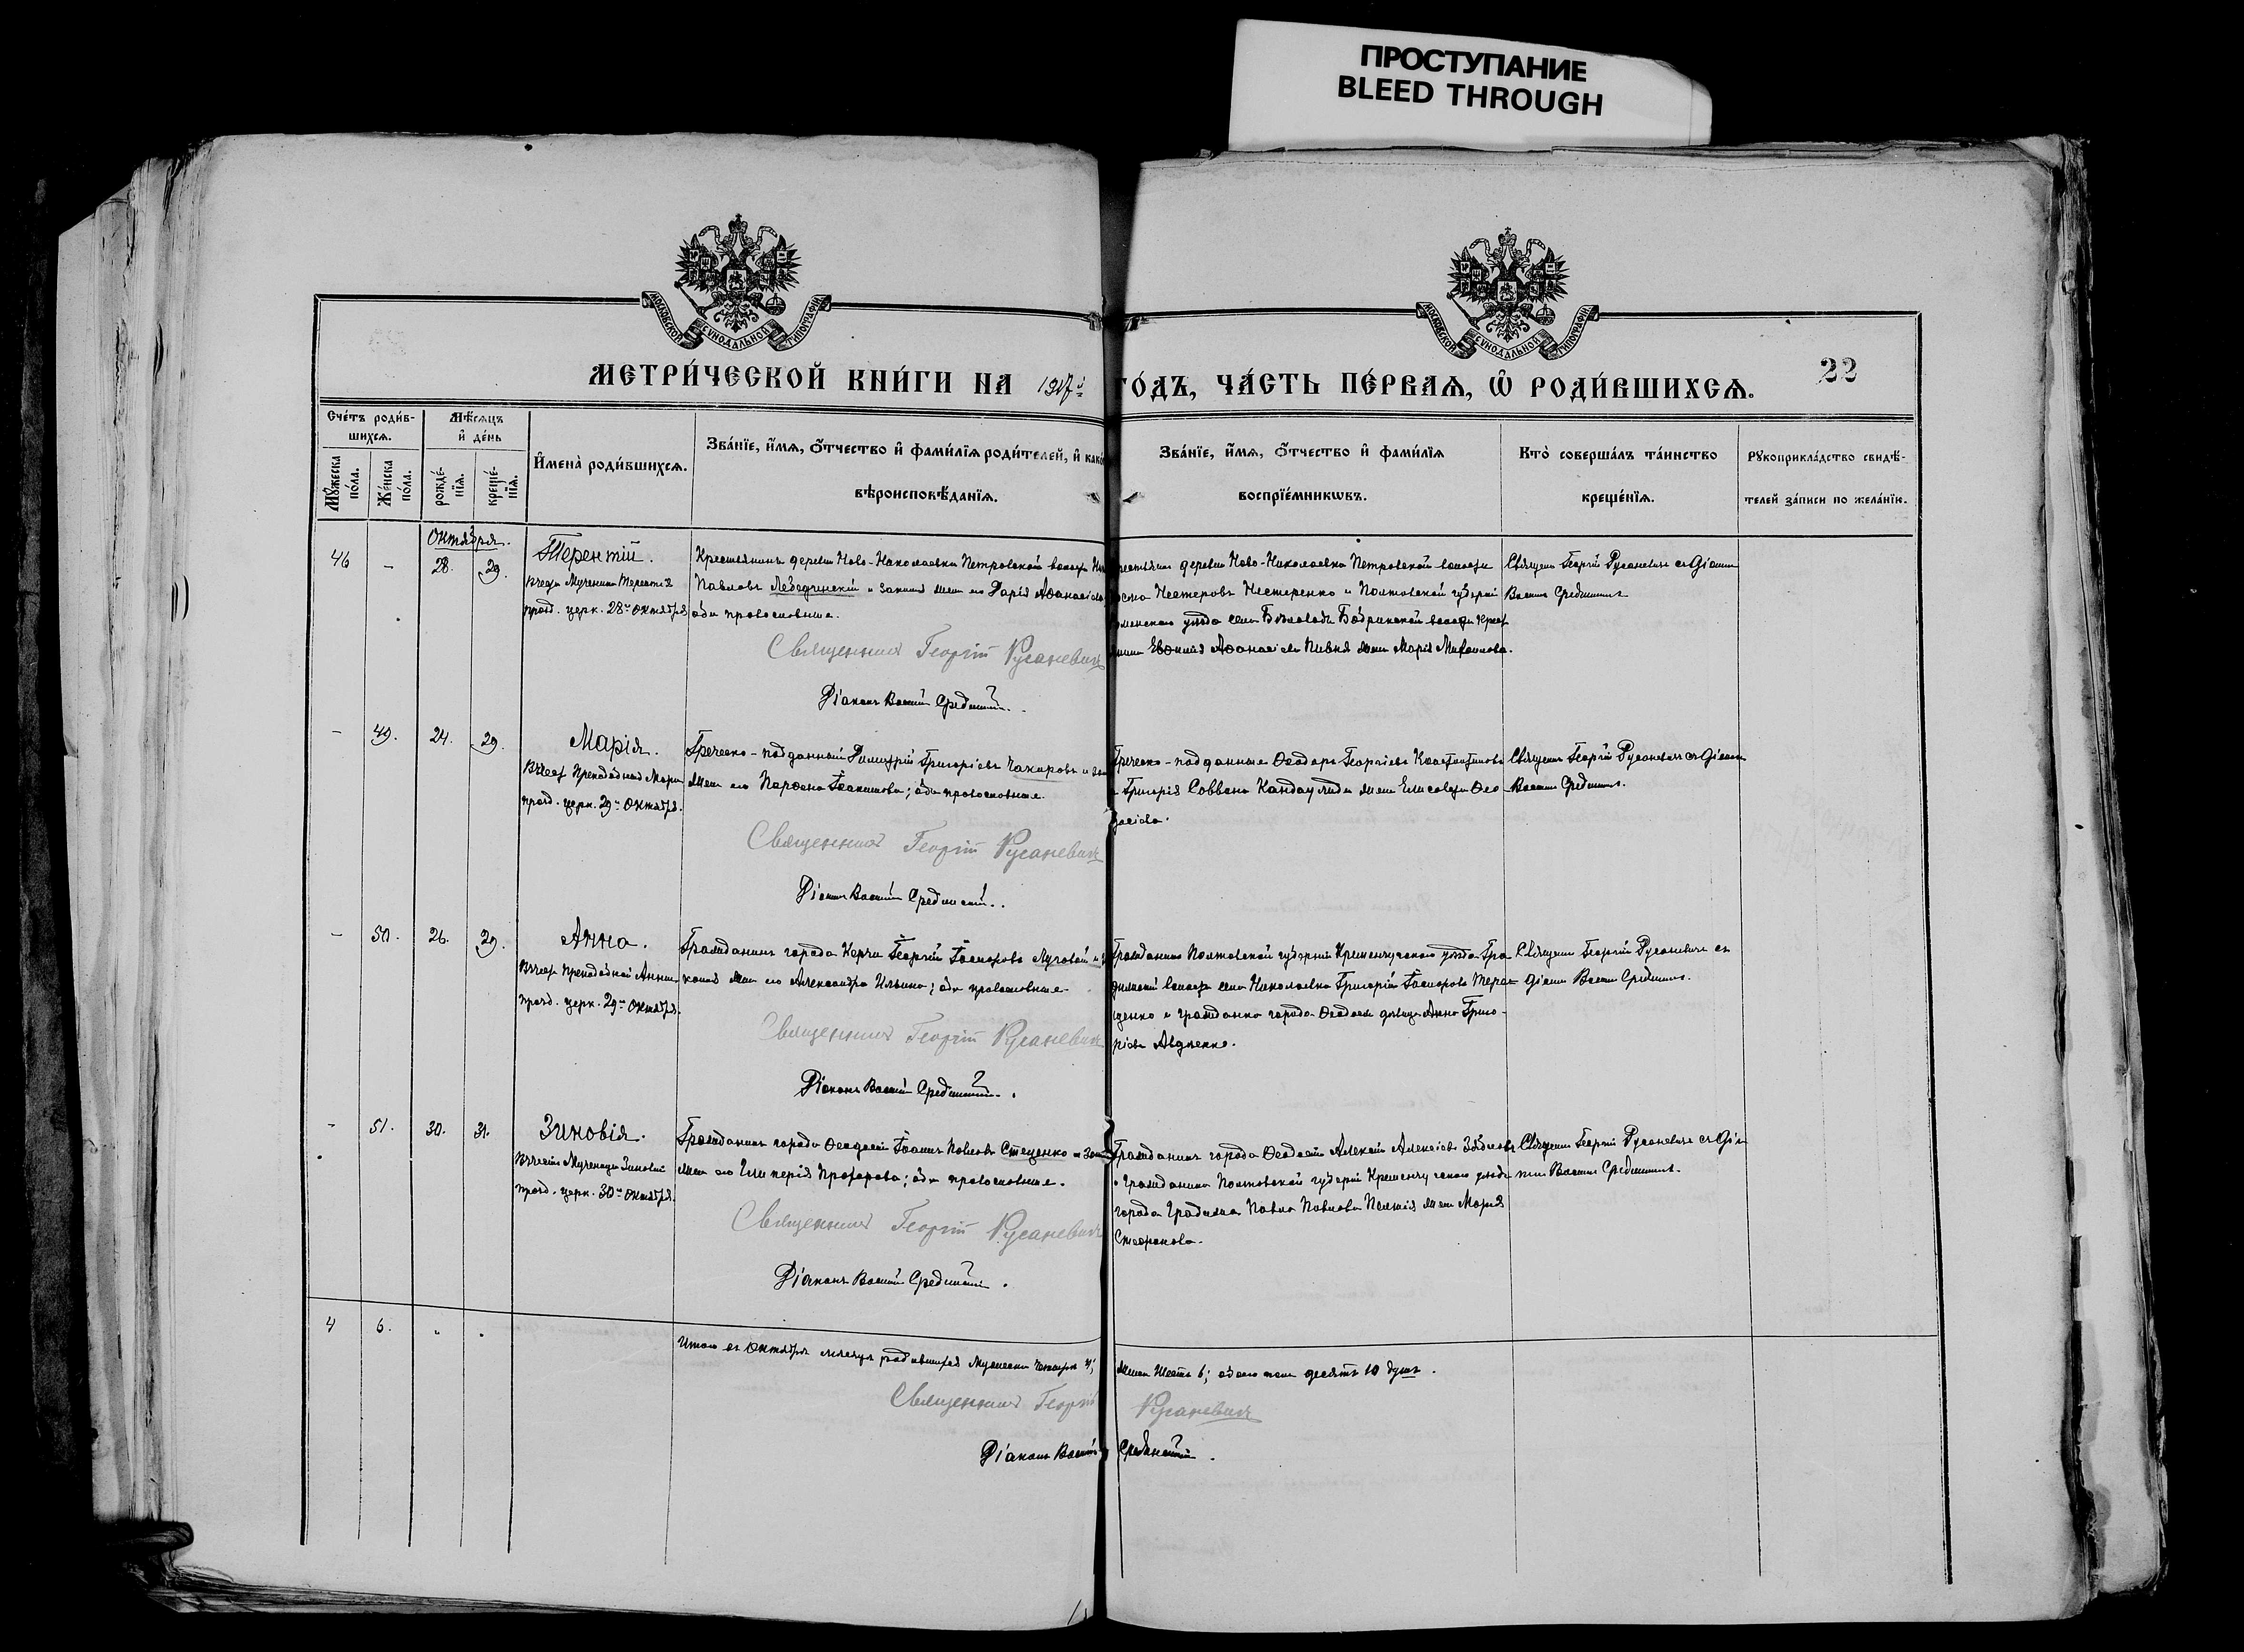 ПРОСТУПАНИЕ
BLEED THROUGH
МОСКОВСКОЙ СУНОДАЛЬНОЙ ТИПОГРАФІИ
МОСКОВСКОЙ СУНОДАЛЬНОЙ ТИПОГРАФІИ
МЕТРИ́ЧЕСКОЙ КНИ́ГИ НА 1917й
ГО́ДЪ, ЧА́СТЬ ПЕ́РВАѦ, Ѡ҆ РОДИ́ВШИХСѦ.
22
Сче́тъ роди́в-
шихсѧ.
Мꙋ́жеска по́ла.
Же́нска по́ла.
Мѣ́сѧцъ
и҆ де́нь
рожде́-нїѧ.
креще́-нїѧ.
И҆мена̀ роди́вшихсѧ.
Зва́нїе, и҆́мѧ, ѻ҆́тчество и҆ фами́лїѧ роди́телей, и҆ како́
вѣроисповѣ́данїѧ.
Зва́нїе, и҆́мѧ, ѻ҆́тчество и҆ фами́лїѧ
воспрїе́мникѡвъ.
Кто̀ соверша́лъ та́инство
креще́нїѧ.
Рꙋкоприкла́дство свидѣ́-
телей за́писи по жела́нїю.
Октября.
46
-
28.
29.
Терентій.
Въ честь Мученика Терентія
празд. церк. 28го Октября
Крестьянинъ деревни Ново-Николаевки Петровской волости
Павловъ Лебединскій и законная жена его Дарія Аѳанасіева
оба православные.
Священникъ Георгій Русаневичъ
Діаконъ Василій Срединскій.
деревни Ново-Николаевки Петровской волости
Нестеровъ Нестеренко и Полтавской губерніи
уѣзда села волости
Евѳимія Аѳанасіева Пивня жена Марія Михаилова.
Священ. Георгій Русаневичъ съ діакон.
Василіемъ Срединскимъ
-
49.
24.
29.
Марія.
Въ честь Преподобной Маріи
празд. церк. 29го Октября.
Греческо-подданный Димитрій Григоріевъ Чакировъ и зак
жена его Парѳена Іоакимова; оба православные.
Священникъ Георгій Русаневичъ
Діаконъ Василій Срединскій.
Греческо-подданные Ѳеодоръ Георгіевъ Константиновъ
и Григорія Саввана жена Елисавета Ѳео-
досіева.
Священ. Георгій Русаневичъ съ діакон.
Василіемъ Срединскимъ.
-
50.
26.
29.
Анна.
Въ честь Преподобной Анны
празд. церк. 29го Октября.
Гражданинъ города Керчи Георгій Іосифовъ Луговой и за
конная жена его Александра Ильина; оба православные.
Священникъ Георгій Русаневичъ
Діаконъ Василій Срединскій.
Гражданинъ Полтавской губерніи Кременчугскаго уѣзда Гра-
дижской волости села Николаевка Григорій Іосифовъ Тере-
щенко и гражданка города Ѳеодосіи дѣвица Анна Григо-
ріева Авдѣенко.
Священ. Георгій Русаневичъ съ
діакон. Василіемъ Срединскимъ.
-
51.
30.
31.
Зиновія.
Въ честь Мученицы Зиновіи
празд. церк. 30го Октября.
Гражданинъ города Ѳеодосіи Іоаннъ Павловъ Стеценко и зак
жена его Гликерія Прохорова; оба православные.
Священникъ Георгій Русаневичъ
Діаконъ Василій Срединскій.
Гражданинъ города Ѳеодосіи Алексій Алексіевъ
и гражданина Полтавской губерніи Кременчугскаго уѣзда
города Градижска Павла Павлова жена Марія
Стефанова.
Священ. Георгій Русаневичъ съ діа-
Василіемъ Срединскимъ.
4
6.
Итого въ Октябрѣ мѣсяцѣ родившихся Мужеска четыре 4;
Женска Шесть 6; обоего пола десять 10 душъ.
Священникъ Георгій Русаневичъ
Діаконъ Василій Срединскій.